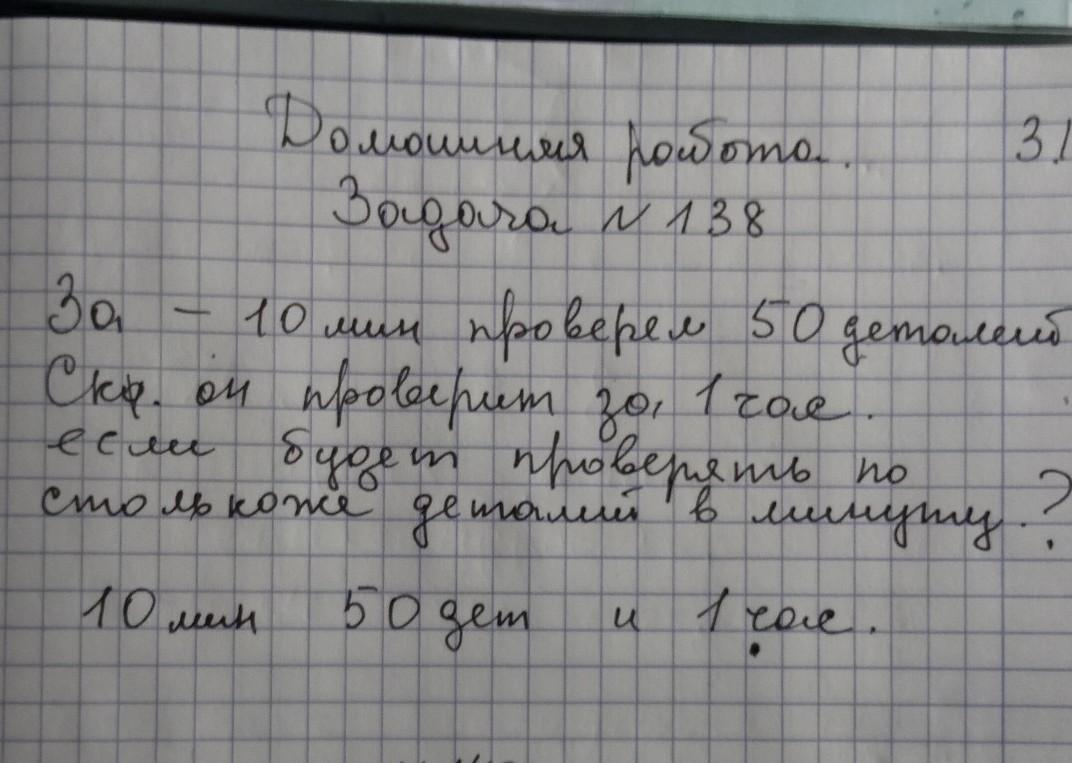 Домошняя робота. 3.1
Задача N 138
За - 10 мин проверел 50 деталей
Скр. он проверит за, 1 час.
если будет проверять по
столькоже деталий в минуту.?
10 мин 50 дет и 1 час.